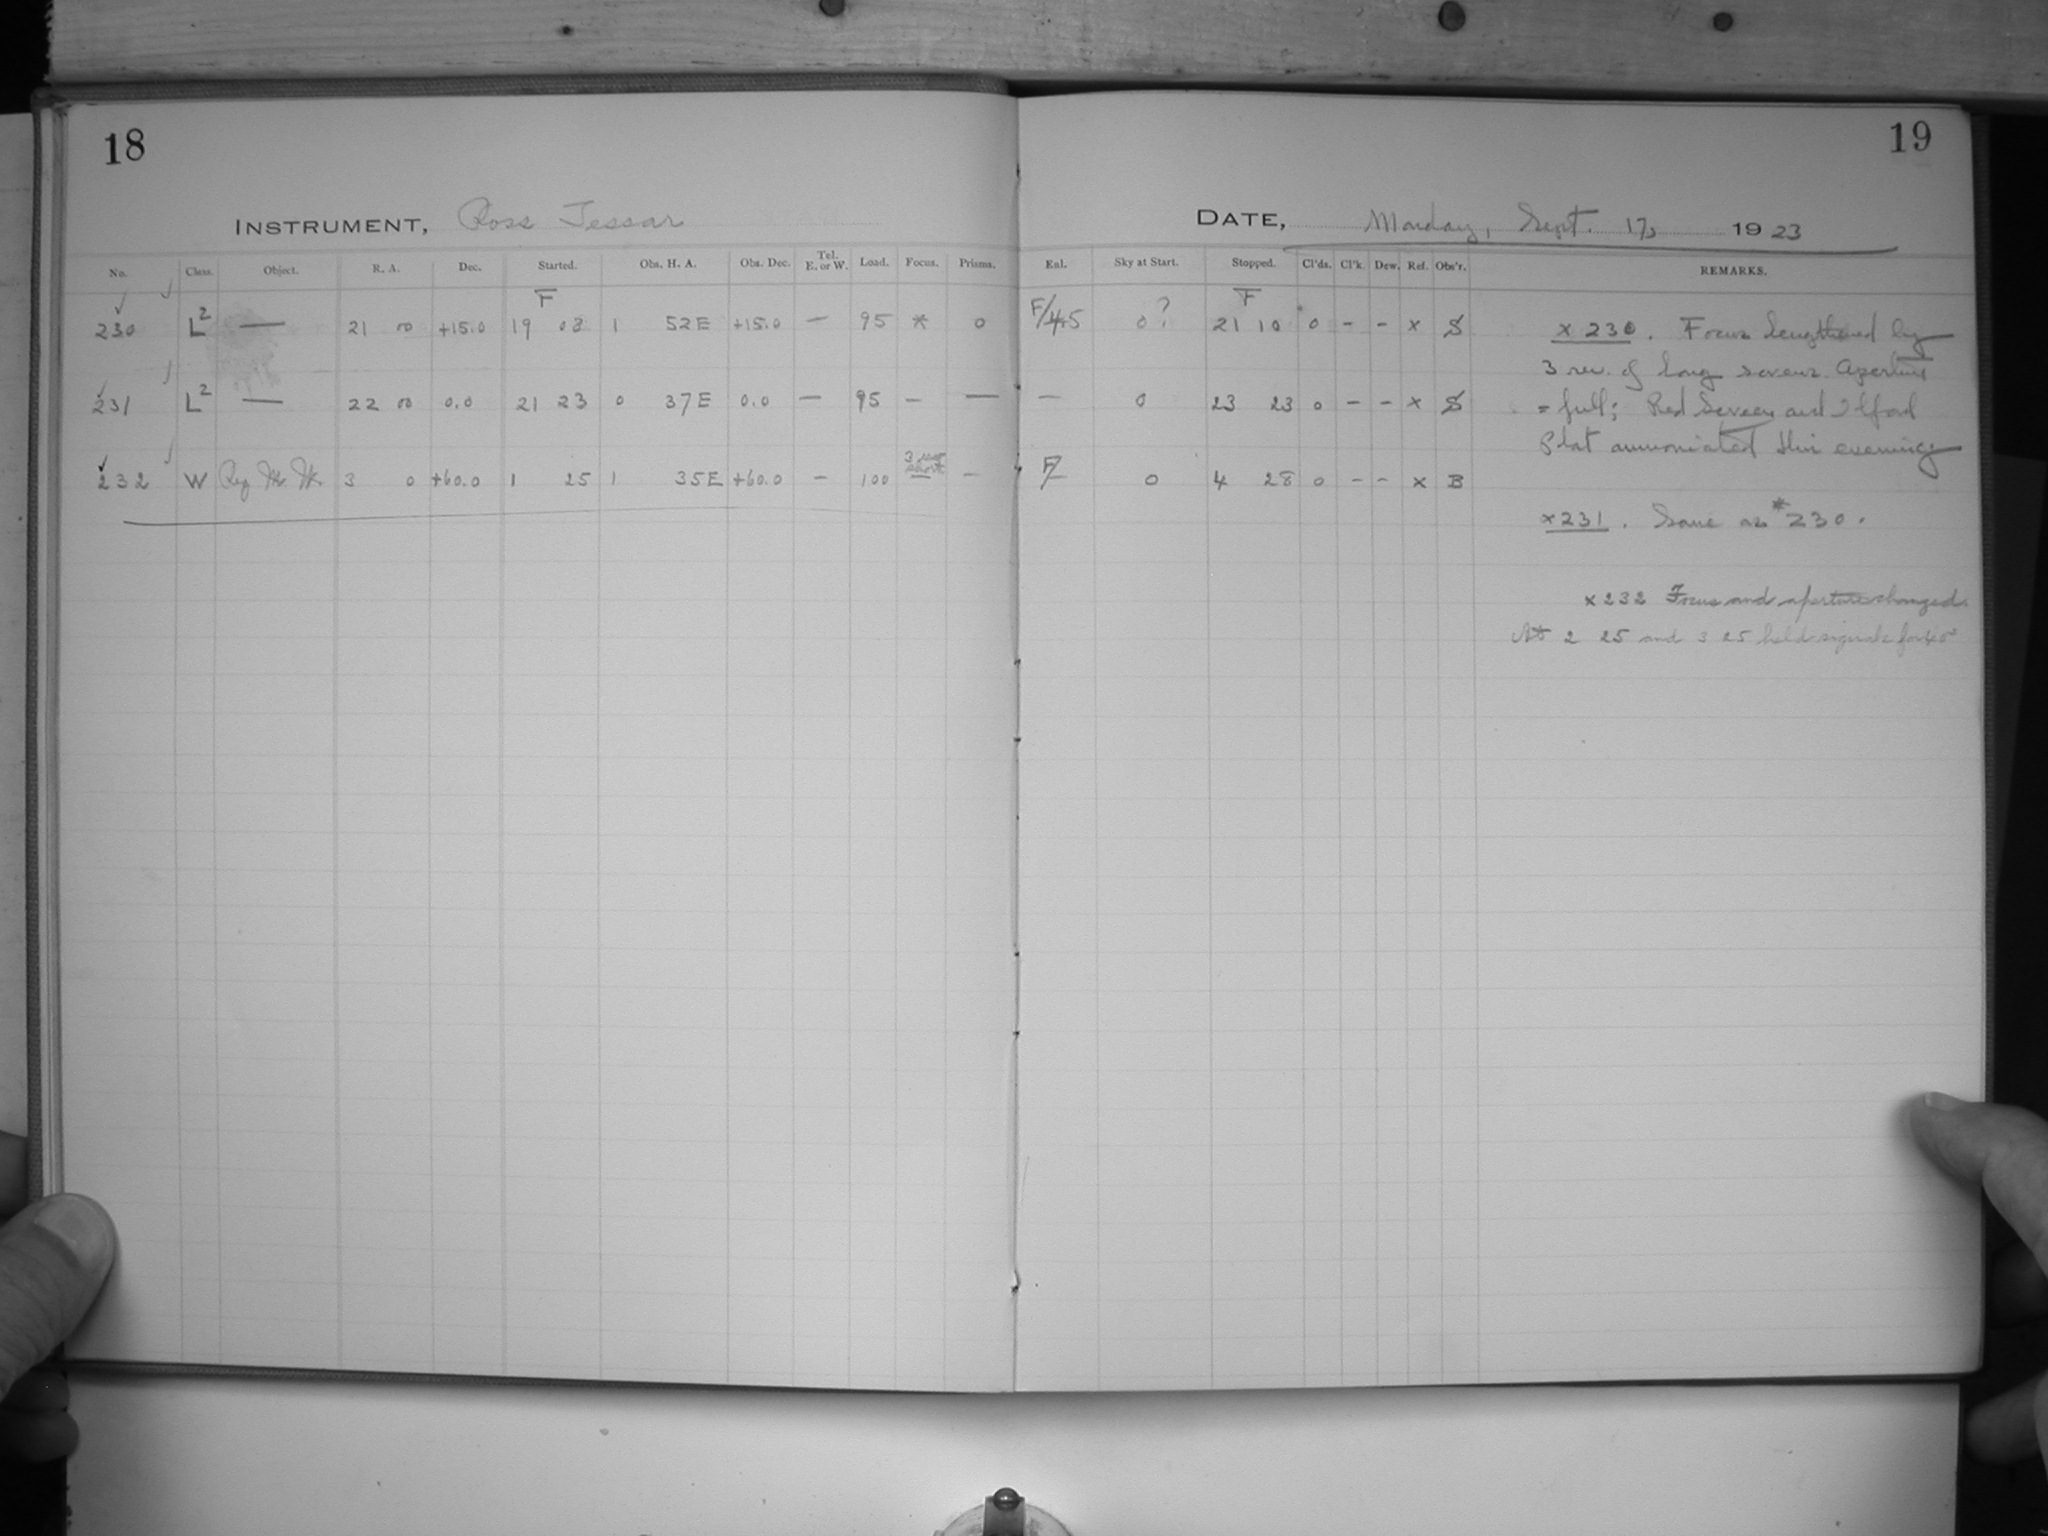 18
INSTRUMENT, Ross Tessar
No. Class. Object. R. A. Dec. Started. Obs. H. A. Obs. Dec. Tel. E. or W. Load. Focus. Prisms.
F
230 L2 — 21 00 +15.0 19 08 1 52E +15.0 — 95 * 0
231 L2 — 22 00 0.0 21 23 0 37E 0.0 — 95 – —
3 rev short
232 W Reg 3 0 +60.0 1 25 1 35E +60.0 – 100 –
19
DATE, Monday, Sept. 17, 1923
Enl. Sky at Start. Stopped. Cl'ds. Cl'k. Dew. Ref. Obs'r. REMARKS.
F
F/4.5 0? 21 10 0 - - x S
— 0 23 23 0 - - x S
F/ 0 4 28 0 - - x B
x 230. Focus lengthened by
3 rev. of long screws. Aperture
= full; Red Screen and Ilford
Plat ammoniated this evening
x 231. Same as #230.
x 232 Focus and aperture changed.
At 2 25 and 3 25 held signals for